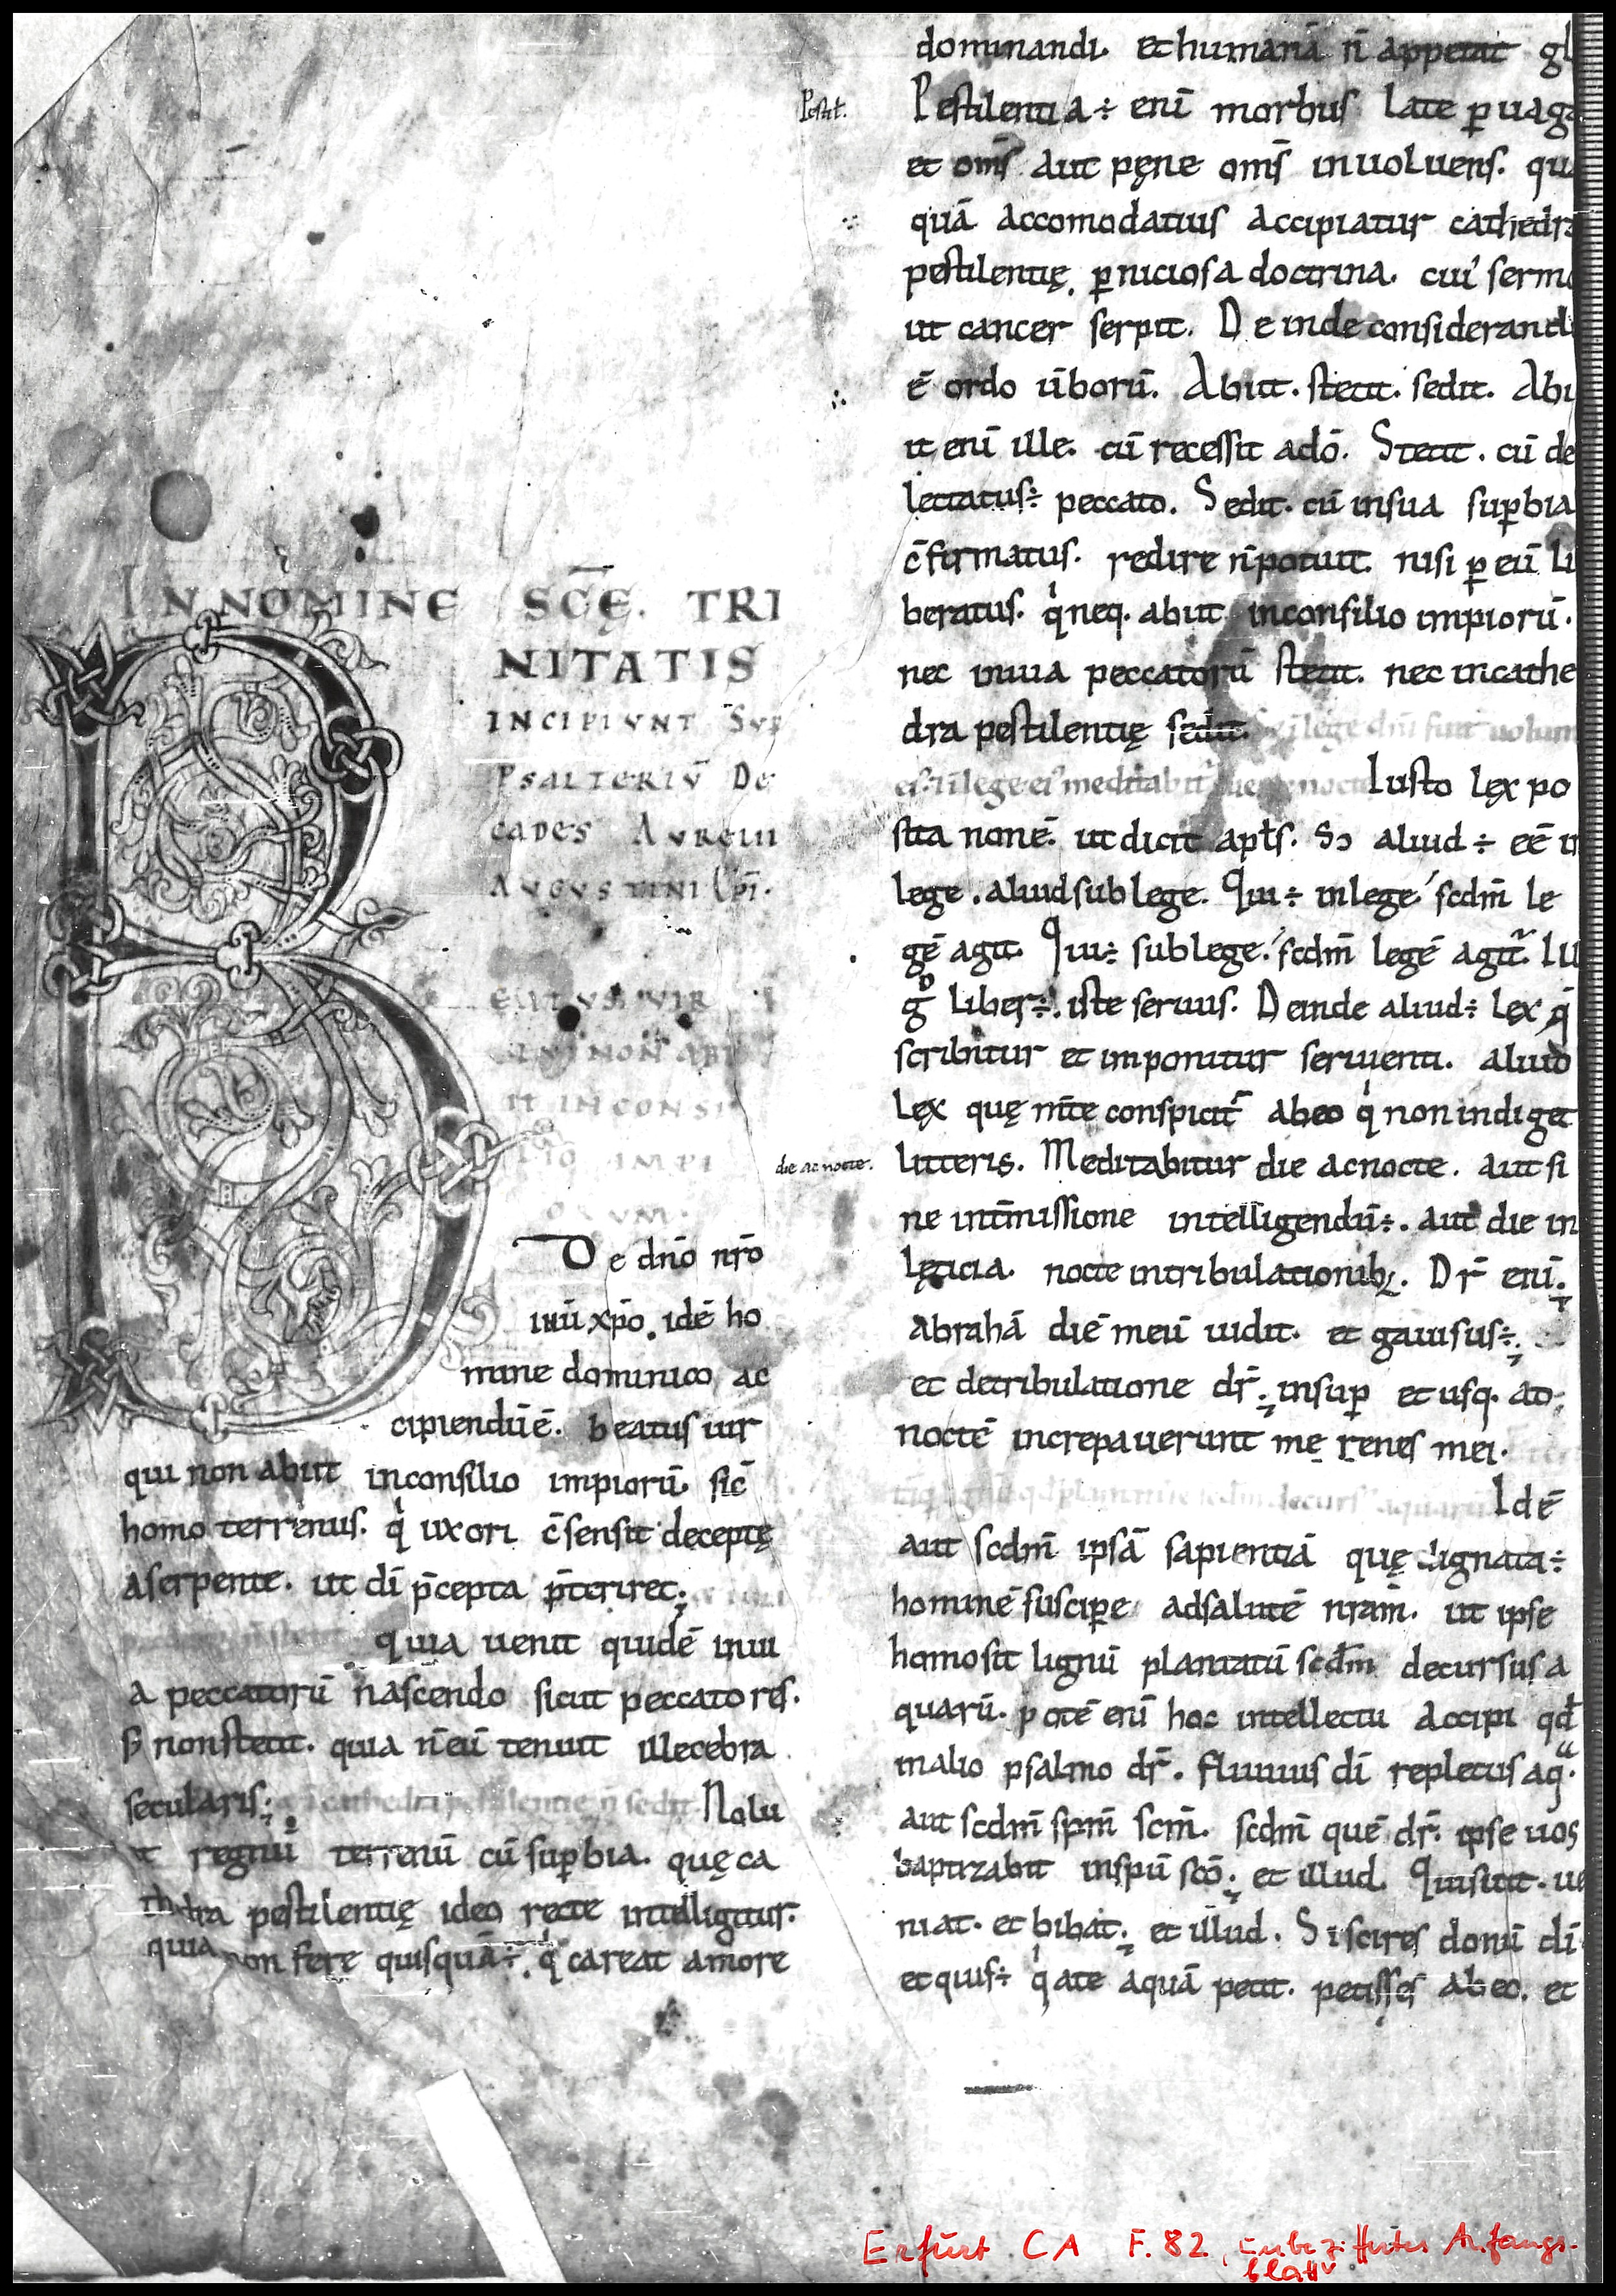 IN NOMINE SCĒ. TRI
NITATIS
INCIPIVNT SVP
PSALTERIV̄ DE
CADES AVRELII
AVGVSTINI EP̄I.
EATVS VIR
NON ABI
IT IN CONSI
LIO IMPI
ORVM.
De dn̄o nr̄o
ihū xp̄o. idē ho
mine dominico, ac
cipiendū ē. beatus uir
qui non abiit inconsilio impiorū. sic̄
homo terrenus. qͥ uxori c̄sensit deceptę
aserpente. ut dī p̄cepta p̄teriret;
quia uenit quidē inui
a peccatorū nascendo sicut peccatores.
sꝫ nonstetit. quia n̄ eū tenuit illecebra
secularis; cathedra pestilentie n̄ sedit. Nolu
t regnū terrenū cū suꝑbia. quę ca
thedra pestilentię ideo recte intelligitur.
quia non fere quisquā÷. qͥ careat amore
dominandi. et humanā n̄ appetat gl
Pestilentia÷ enī morbus late ꝑuaga
et om̄s aut pęne om̄s inuoluens. qu
quā accomodatius accipiatur cathedra
pestilentię, ꝑniciosa doctrina. cui' sermo
ut cancer serpit. Deinde considerand
ē ordo ūborū. Abiit. stetit. sedit. Abi
it enī ille. cū recessit adō. Stetit. cū de
lectatus÷ peccato. Sedit. cū insua suꝑbia
c̄firmatus. redire n̄potuit. nisi ꝑ eū li
beratus. qͥ neq. abiit inconsilio impiorū.
nec inuia peccatorū stetit. nec incathe
dra pestilentię sedit. Sꝫ ī lege dn̄i fuit uolun
ei' ⁊ ī lege ei' meditabit' die ac nocte Iusto lęx po
sita non ē. ut dicit apl̄s. Sꝫ aliud÷ eē in
lege. aliud sub lege. Qui÷ inlege scdm̄ le
gē agit. Qui÷ sublege. scdm̄ legē agit̄. Ill
gͦ liber÷. iste seruus. Deinde aliud÷ lęx q̄
scribitur et imponitur seruienti. aliud
lęx quę m̄te conspicit̄ abeo qͥ non indiget
litteris. Meditabitur die acnocte. aut si
ne int̄missione intelligendū÷. aut die in
lęticia. nocte intribulationibꝫ. Dr̄ enī;
Abrahā diē meū uidit. et gauisus÷;
et detribulatione dr̄; insuꝑ et usq. ad
noctē increpauerunt me renes mei.
scdm decurs' aquarū Idē
aut scdm̄ ipsā sapientiā quę dignata÷
hominē susciꝑe adsalutē nrām. ut ipse
homo sit lignū plantatū scdm̄ decursus a
quarū. potē enī hoc intellectu accipi qd̄
inalio psalmo dr̄. fluuius dī repletus aqᵃ.
aut scdm̄ spm̄ scm̄. scdm̄ quē dr̄. ipse uos
baptizabit inspū scō; et illud. Quisitit. ue
niat. et bibat; et illud. Siscires donū dī
et quis÷ qͥ ate aquā petit. petisses ab eo. et
Pestil.
die ac nocte.
Erfurt CA F. 82, unbeziffertes Anfangs-
blatt